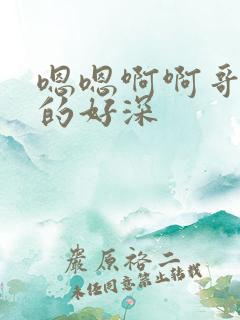 嗯嗯啊啊哥
的好深
严原裕二
未经同意禁止转载